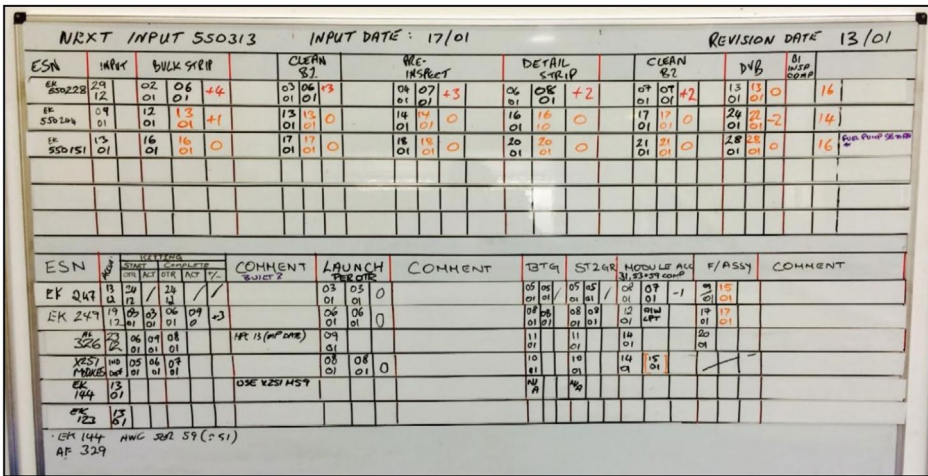 NEXT INPUT 550313 INPUT DATE: 17/01 REVISION DATE 13/01
ESN INPUT BULK STRIP CLEAN 82 PRE-INSPECT DETAIL STRIP CLEAN 82 DVB 81 INSP COMP
EK 550228 29 12 02 01 06 01 +4 03 01 06 01 +3 04 01 07 01 +3 06 01 08 01 +2 07 01 09 01 +2 13 01 13 01 0 16
EK 09 01 12 01 13 01 +1 13 01 13 01 0 14 01 14 01 0 16 01 16 0 17 01 17 01 0 24 01 22 01 -2 14
EK 550151 13 01 16 01 16 01 0 17 01 17 01 0 18 01 18 01 0 20 01 20 01 0 21 01 21 01 0 28 01 28 01 0 16 FUEL PUMP
KITTING
START COMPLETE
ESN OTR ACT OTR ACT +/- COMMENT BUILT? LAUNCH PER OTR COMMENT BTG ST2GR MODULE ALL 31, 53+59 COMP F/ASSY COMMENT
EK 247 13 12 24 12 / 24 12 / / 03 01 03 01 0 05 01 05 01 / 05 01 05 01 / 08 01 07 01 -1 9 01 15 01
EK 249 19 12 03 01 03 01 06 01 09 0 +3 06 01 06 01 0 08 01 08 01 08 01 08 01 12 01 LPT 17 01 17 01
326 23 12 06 01 09 01 08 01 HPC 13 (MP DATE) 09 01 11 01 11 01 14 01 20 01
X251 05 01 06 01 07 01 08 01 08 01 0 10 01 10 01 14 15 01
EK 144 13 01 USE X251 M59 N/A N/A
EK 123 13 01
· EK 144 AWC 59 (
AF 329